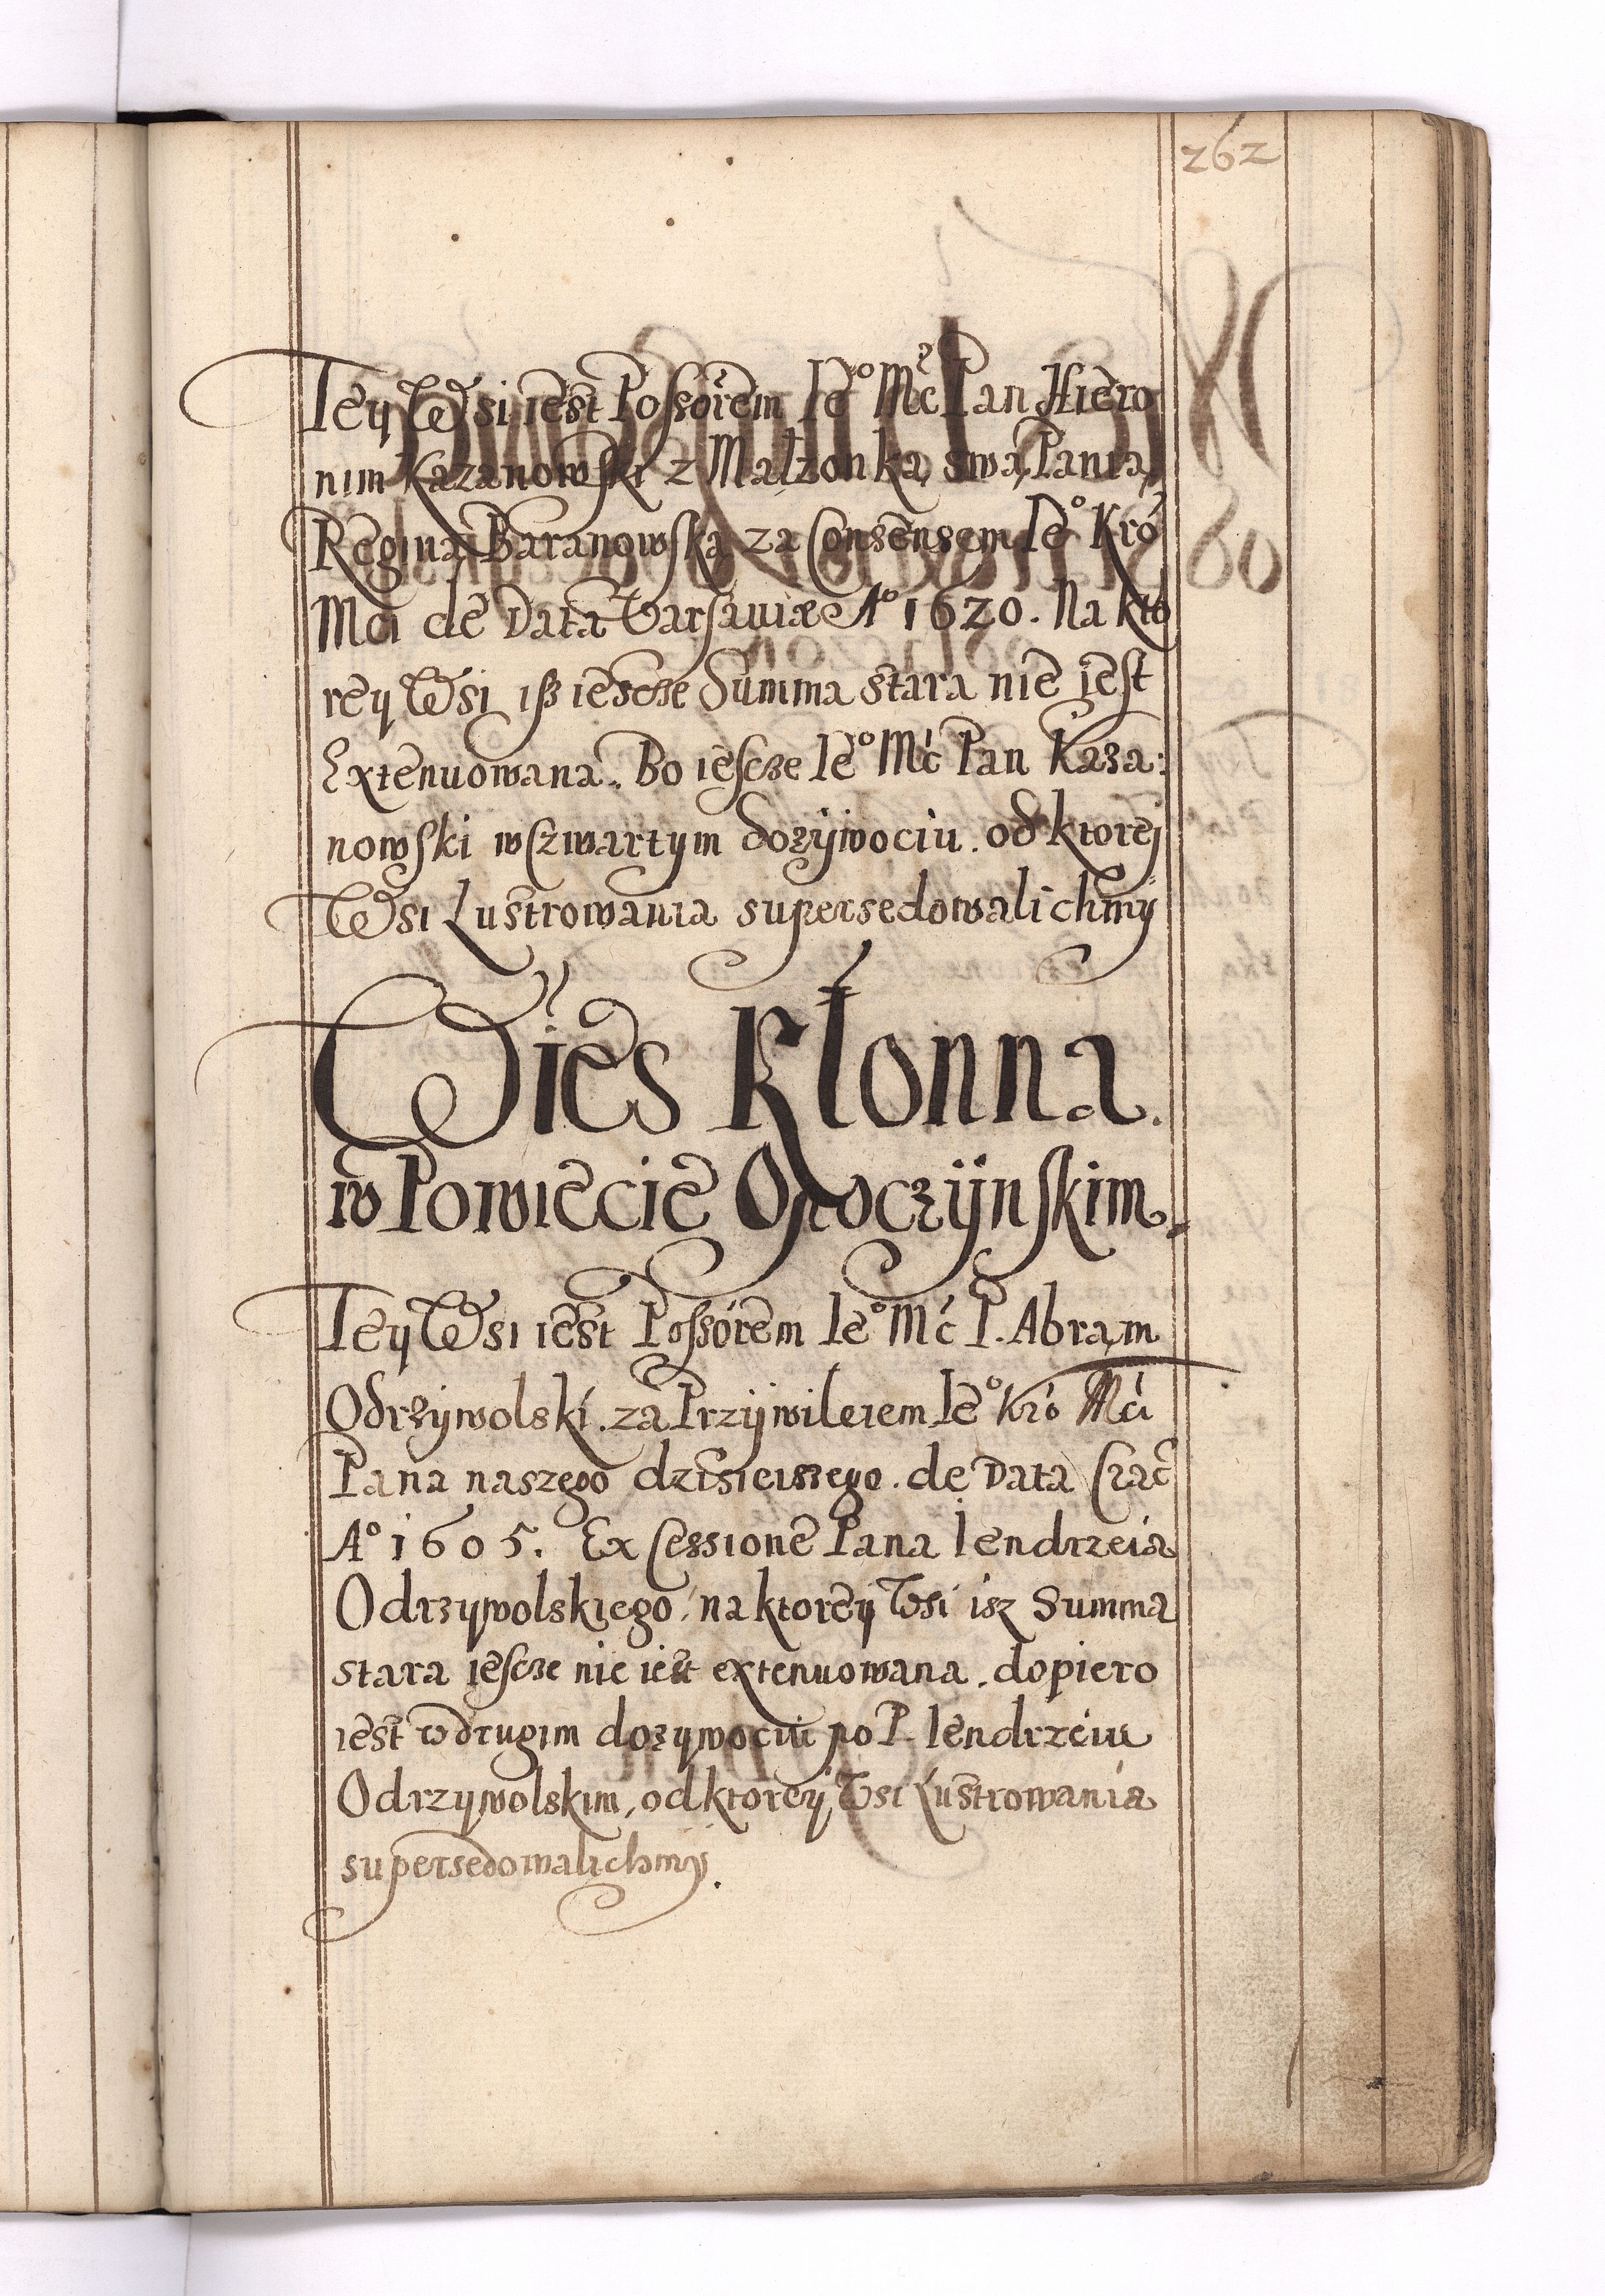 262
Tey Wsi iest Possorem Ie° Mć Pan Hiero
nim Kazanowski z Małzonką swą Panią
Reginą Baranowską za Consensem Ie° Kró
Mci de Data Varsauiæ A° 1620. Na kto
rey Wsi isz iescze Summa stara nie iest
Extenuowana. Bo iescze Ie° Mć Pan Kaza:
nowski w czwartym dozÿwociu. od ktorej
Wsi Lustrowania supersedowalichmÿ
Wies Kłonna.
w Powiecie Opoczÿnskim.
Tey Wsi iest Possorem Ie° Mć P. Abram
Odrzÿwolski. za Przÿwileiem Ie° Kró Mci
Pana naszego dzisieiszego. de Data Crac
A° 1605. Ex Cessione Pana Iendrzeia
Odrzywolskiego, na ktorey Wsi isz Summa
stara iescze nie iest extenuowana. dopiero
iest w drugim dozywociu po P. Iendrzeiu
Odrzywolskim, od ktorey Wsi Lustrowania
supersedowalichmy.